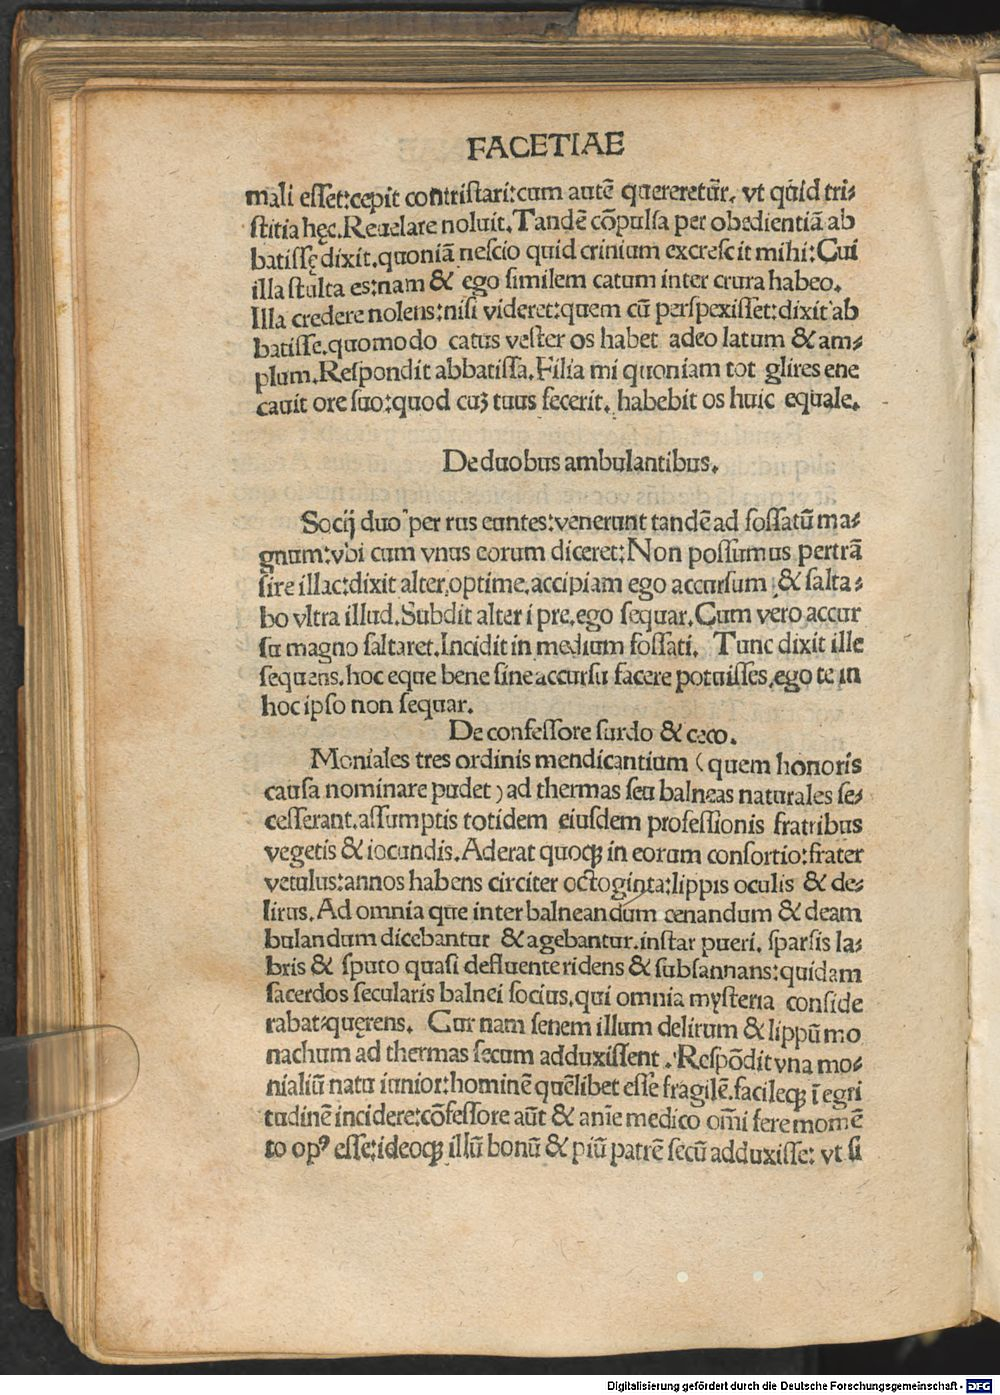 FACETIAE
mali eſſet:cepit contriſtari:cum autē quereretur̄, vt quid tri⸗
ſtitia hęc.Reuelare noluit.Tandē cōpulſa per obedientiā ab
batiſſę dixit.quoniā neſcio quid crinium excreſcit mihi:Cui
illa ſtulta es:nam & ego ſimilem catum inter crura habeo.
Illa credere nolens:niſi videret:quem cū perſpexiſſet:dixit ab
batiſſe.quomodo catus veſter os habet adeo latum & am⸗
plum.Reſpondit abbatiſſa.Filia mi quoniam tot glires ene
cauit ore ſuo:quod cuꝫ tuus fecerit, habebit os huic equale.
De duobus ambulantibus.
Socij duo per rus euntes:venerunt tandē ad foſſatū ma⸗
gnum:vbi cum vnus eorum diceret:Non poſſumus pertrā
ſire illac:dixit alter,optime,accipiam ego accurſum & ſalta⸗
bo vltra illud.Subdit alter i pre,ego ſequar.Cum vero accur
ſu magno ſaltaret.Incidit in medium foſſati. Tunc dixit ille
ſequens.hoc eque bene ſine accurſu facere potuiſſes,ego te in
hoc ipſo non ſequar.
De confeſſore ſurdo & ceco.
Moniales tres ordinis mendicantium (quem honoris
cauſa nominare pudet) ad thermas ſeu balneas naturales ſe⸗
ceſſerant.aſſumptis totidem eiuſdem profeſſionis fratribus
vegetis & iocundis.Aderat quoqꝫ in eorum conſortio:frater
vetulus:annos habens circiter octoginta:lippis oculis & de⸗
lirus.Ad omnia que inter balneandum cenandum & deam
bulandum dicebantur & agebantur.inſtar pueri, ſparſis la⸗
bris & ſputo quaſi defluente ridens & ſubſannans:quidam
ſacerdos ſecularis balnei ſocius,qui omnia myſteria conſide
rabat:quęrens. Cur nam ſenem illum delirum & lippū mo
nachum ad thermas ſecum adduxiſſent.Reſpōdit vna mo⸗
nialiū natu iunior:hominē quēlibet eſſe fragilē.facileqꝫ ī egri
tudinē incidere:cōfeſſore aūt & anīe medico om̄i fere momē
to opꝰ eſſe:ideoqꝫ illū bonū & piū patrē ſecū adduxiſſe: vt ſi
Digitalisierung gefördert durch die Deutsche Forschungsgemeinschaft - DFG